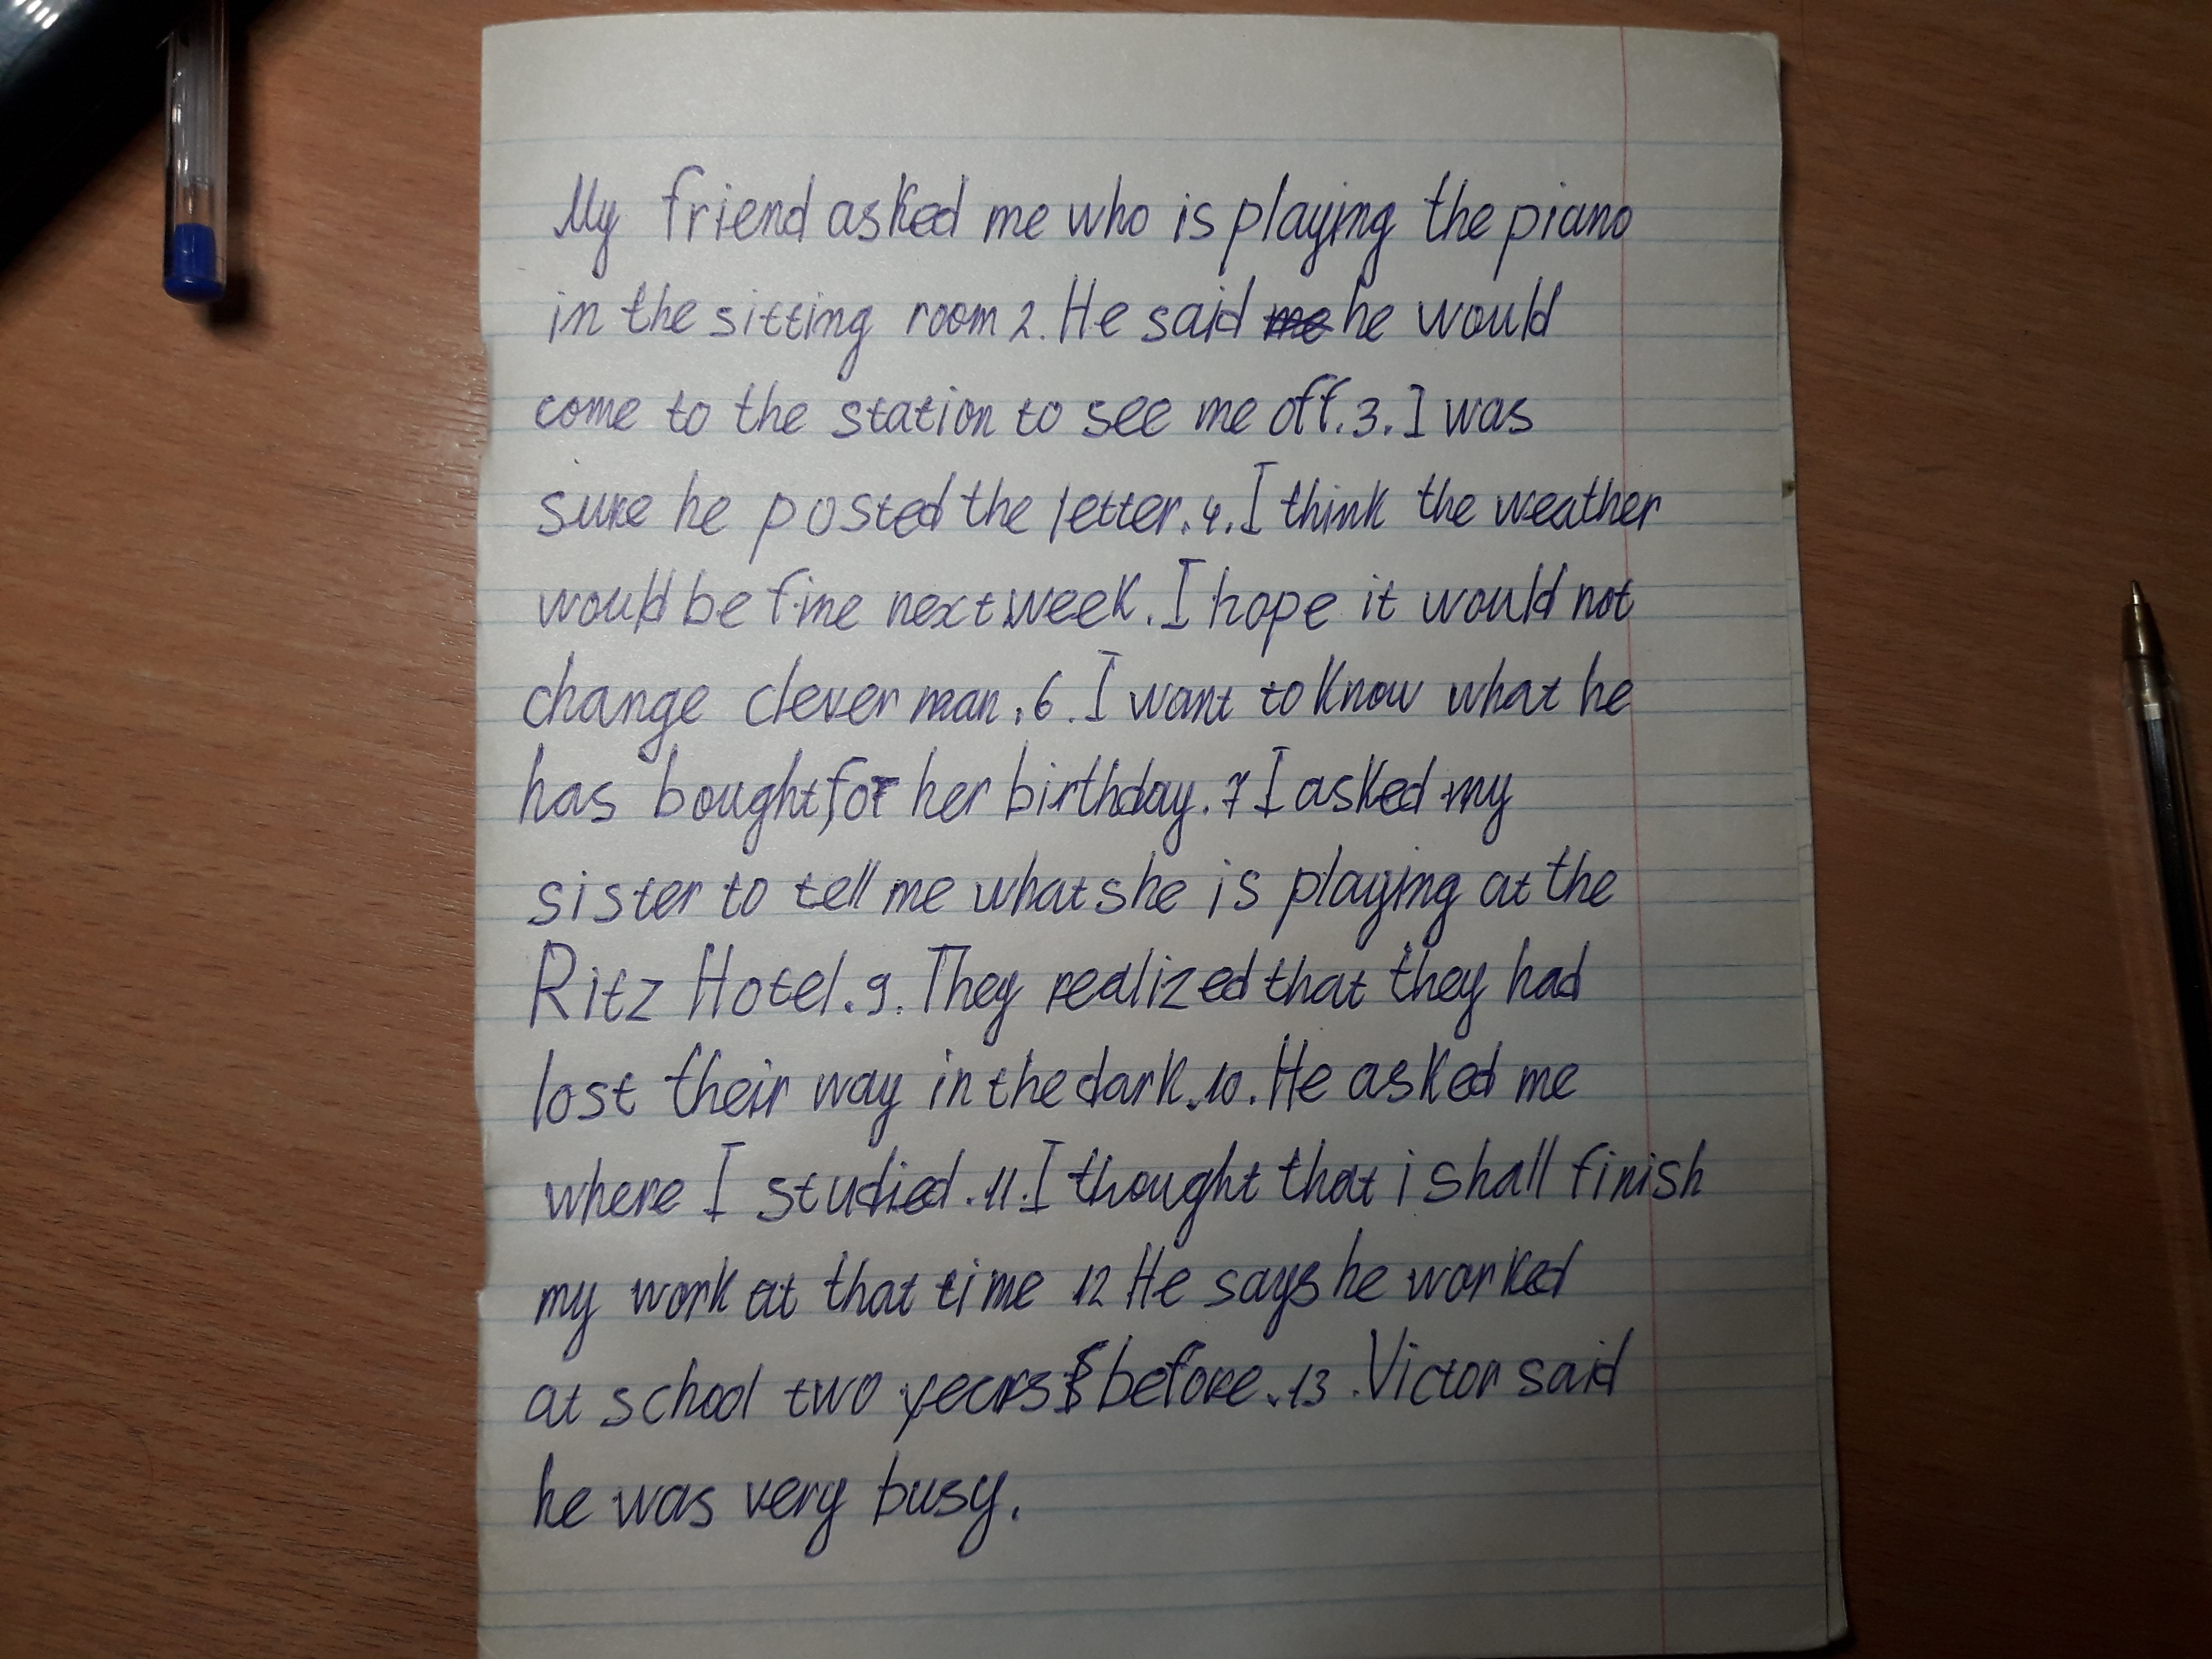 My friend asked me who is playing the piano
in the sitting room 2. He said me he would
come to the station to see me off. 3. I was
sure he posted the letter. 4. I think the weather
would be fine next week. I hope it would not
change clever man. 6. I want to know what he
has bought, for her birthday. 7 I asked my
sister to tell me what she is playing at the
Ritz Hotel. 9. They realized that they had
lost their way in the dark. 10. He asked me
where I studied. 11. I thought that i shall finish
my work at that time 12 He says he worked
at school two years before. 13. Victor said
he was very busy.